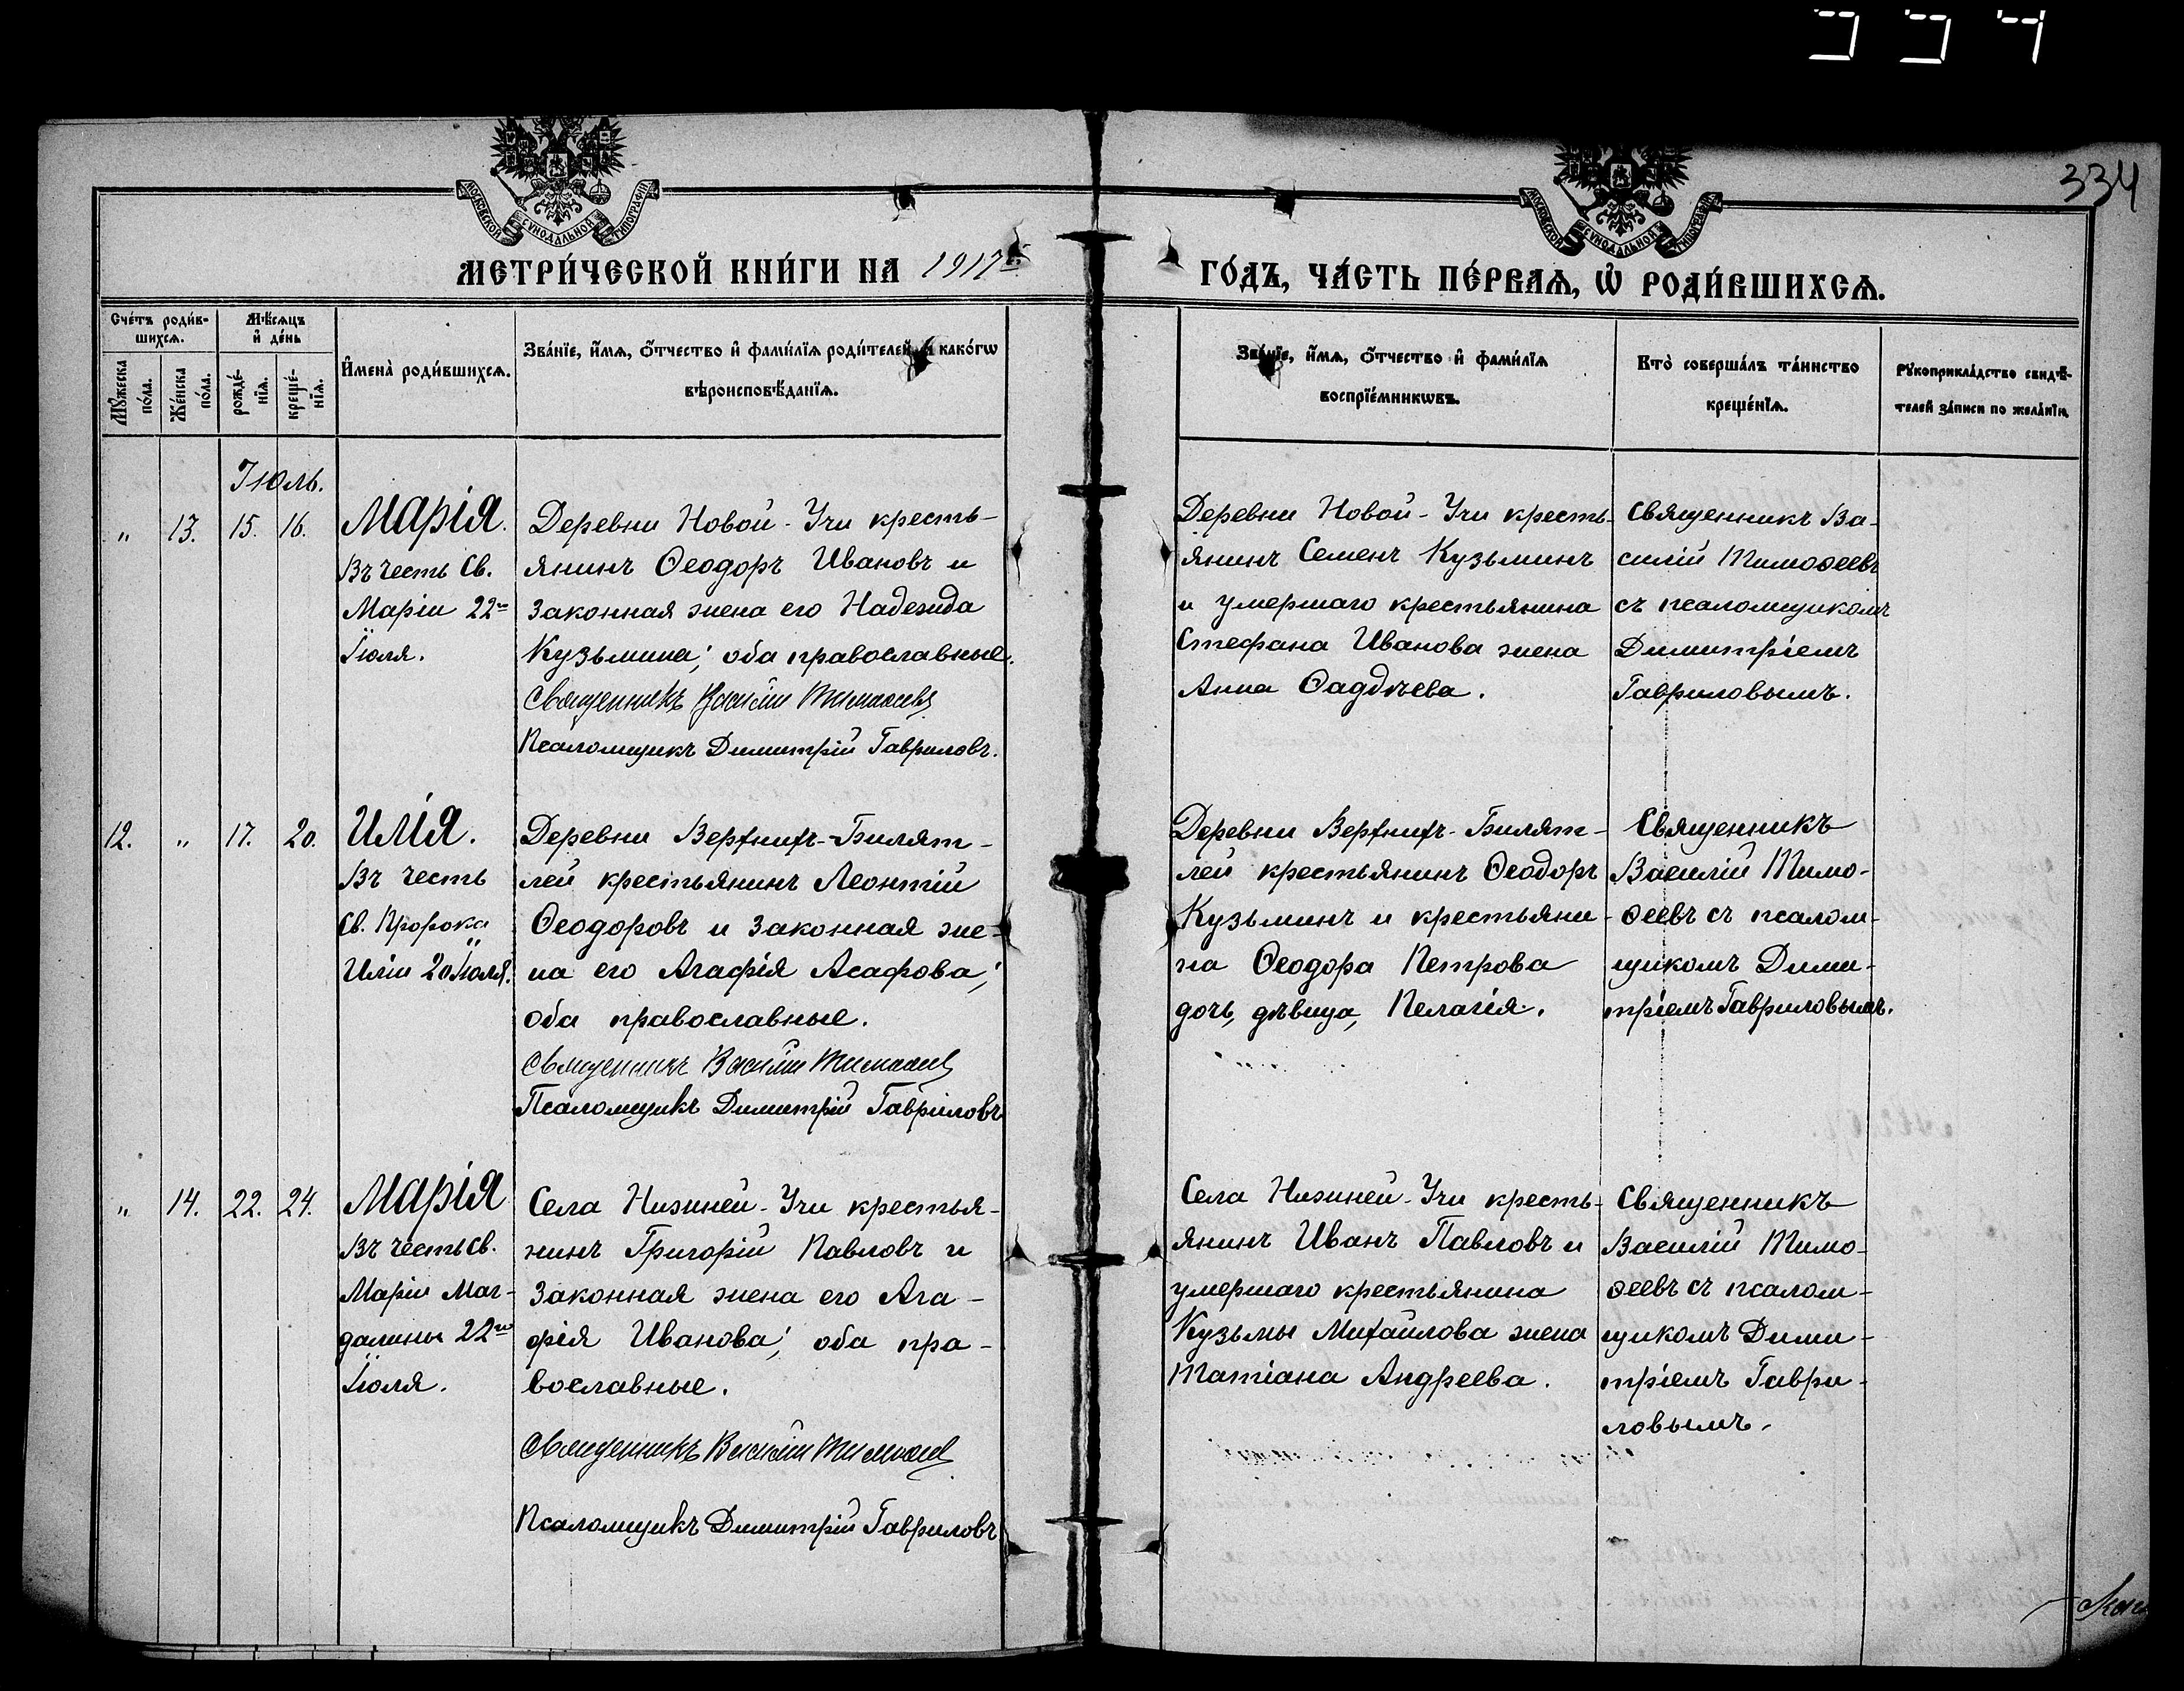 334
334
МОСКОВСКОЙ СѴНОДАЛЬНОЙ ТИПОГРАФІИ
МОСКОВСКОЙ СѴНОДАЛЬНОЙ ТИПОГРАФІИ
МЕТРИ́ЧЕСКОЙ КНИ́ГИ НА 1917й
ГО́ДЪ, ЧА́СТЬ ПЕ́РВАѦ, Ѽ РОДИ́ВШИХСѦ.
Сче́тъ роди́в-
шихсѧ.
Мѣ́сѧцъ
и҆ де́нь
Мꙋ́жеска
по́ла.
Же́нска
по́ла.
рожде́-
нїѧ.
креще́-
нїѧ.
И҆мена̀ роди́вшихсѧ.
Зва́нїе, и҆́мѧ, ѻ҆́тчество и҆ фами́лїѧ роди́телей и҆ како́гѡ
вѣроисповѣ́данїѧ.
Зва́нїе, и҆́мѧ, ѻ҆́тчество и҆ фами́лїѧ
воспрїе́мникѡвъ.
Кто̀ соверша́лъ та́инство
креще́нїѧ.
Рꙋкоприкла́дство свидѣ́-
телей за́писи по жела́нїю.
Іюль.
„ 13. 15. 16.
Марія.
Въ честь Св.
Маріи 22го
Іюля.
Деревни Новой-Учи кресть-
янинъ Ѳеодоръ Ивановъ и
законная жена его Надежда
Кузьмина; оба православные.
Священникъ Василій Тимоѳеевъ
Псаломщикъ Димитрій Гавриловъ.
Деревни Новой-Учи кресть-
янинъ Семенъ Кузьминъ
и умершаго крестьянина
Стефана Иванова жена
Анна Ѳаддѣева.
Священникъ Ва-
силій Тимоѳеевъ
съ псаломщикомъ
Димитріемъ
Гавриловымъ.
12. „ 17. 20.
Илія.
Въ честь
Св. Пророка
Иліи 20 Іюля.
Деревни Верхнихъ-Билят-
лей крестьянинъ Леонтій
Ѳеодоровъ и законная же-
на его Агафія Асафова;
оба православные.
Священникъ Василій Тимоѳеевъ
Псаломщикъ Димитрій Гавриловъ
Деревни Верхнихъ-Билят-
лей крестьянинъ Ѳеодоръ
Кузьминъ и крестьяни-
на Ѳеодора Петрова
дочь, дѣвица, Пелагія.
Священникъ
Василій Тимо-
ѳеевъ съ псалом-
щикомъ Дими-
тріемъ Гавриловымъ.
„ 14. 22. 24.
Марія
Въ честь Св.
Маріи Маг-
далины 22го
Іюля.
Села Нижней-Учи крестья-
нинъ Григорій Павловъ и
законная жена его Ага-
фія Иванова; оба пра-
вославные.
Священникъ Василій Тимоѳеевъ
Псаломщикъ Димитрій Гавриловъ
Села Нижней-Учи кресть-
янинъ Иванъ Павловъ и
умершаго крестьянина
Кузьмы Михайлова жена
Татіана Андреева.
Священникъ
Василій Тимо-
ѳеевъ съ псалом-
щикомъ Дими-
тріемъ Гаври-
ловымъ.